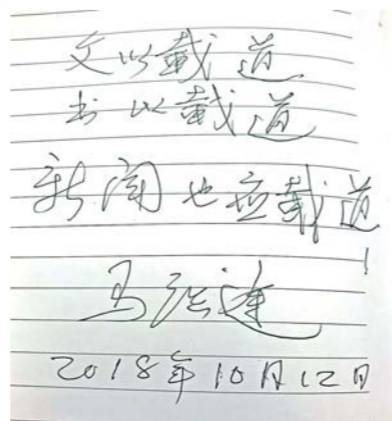 文以载道
书以载道
新闻也应载道
!
2018年10月12日